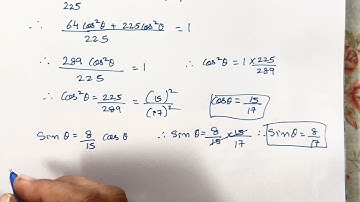 225
∴ 64 cos²θ + 225cos²θ / 225 = 1
∴ 289 cos²θ / 225 = 1 ∴ cos²θ = 1 × 225 / 289
∴ cos²θ = 225 / 289 = (15)² / (17)² cosθ = 15 / 17
Sin θ = 8 / 15 cos θ ∴ Sin θ = 8 / 15 × 15 / 17 ∴ Sin θ = 8 / 17